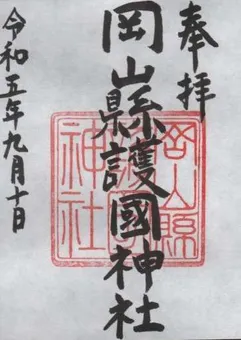 奉拝
岡山縣護國神社
令和五年九月十日
岡山縣
護國
神社